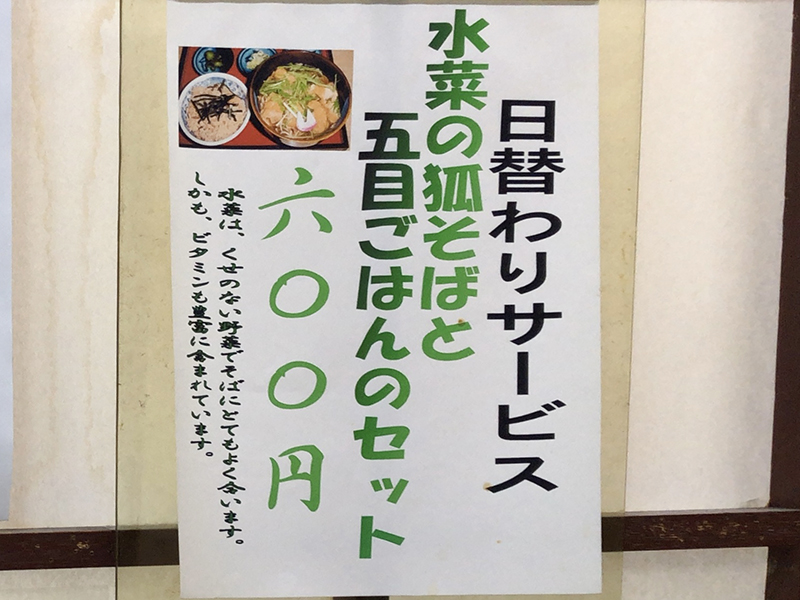 日替わりサービス
水菜の狐そばと
五目ごはんのセット
六〇〇円
水菜は、くせのない野菜でそばにとてもよく合います。
しかも、ビタミンも豊富に含まれています。